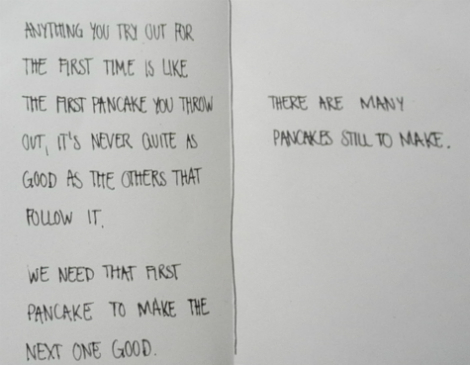 ANYTHING YOU TRY OUT FOR
THE FIRST TIME IS LIKE
THE FIRST PANCAKE YOU THROW
OUT, IT'S NEVER QUITE AS
GOOD AS THE OTHERS THAT
FOLLOW IT.
WE NEED THAT FIRST
PANCAKE TO MAKE THE
NEXT ONE GOOD.
THERE ARE MANY
PANCAKES STILL TO MAKE.